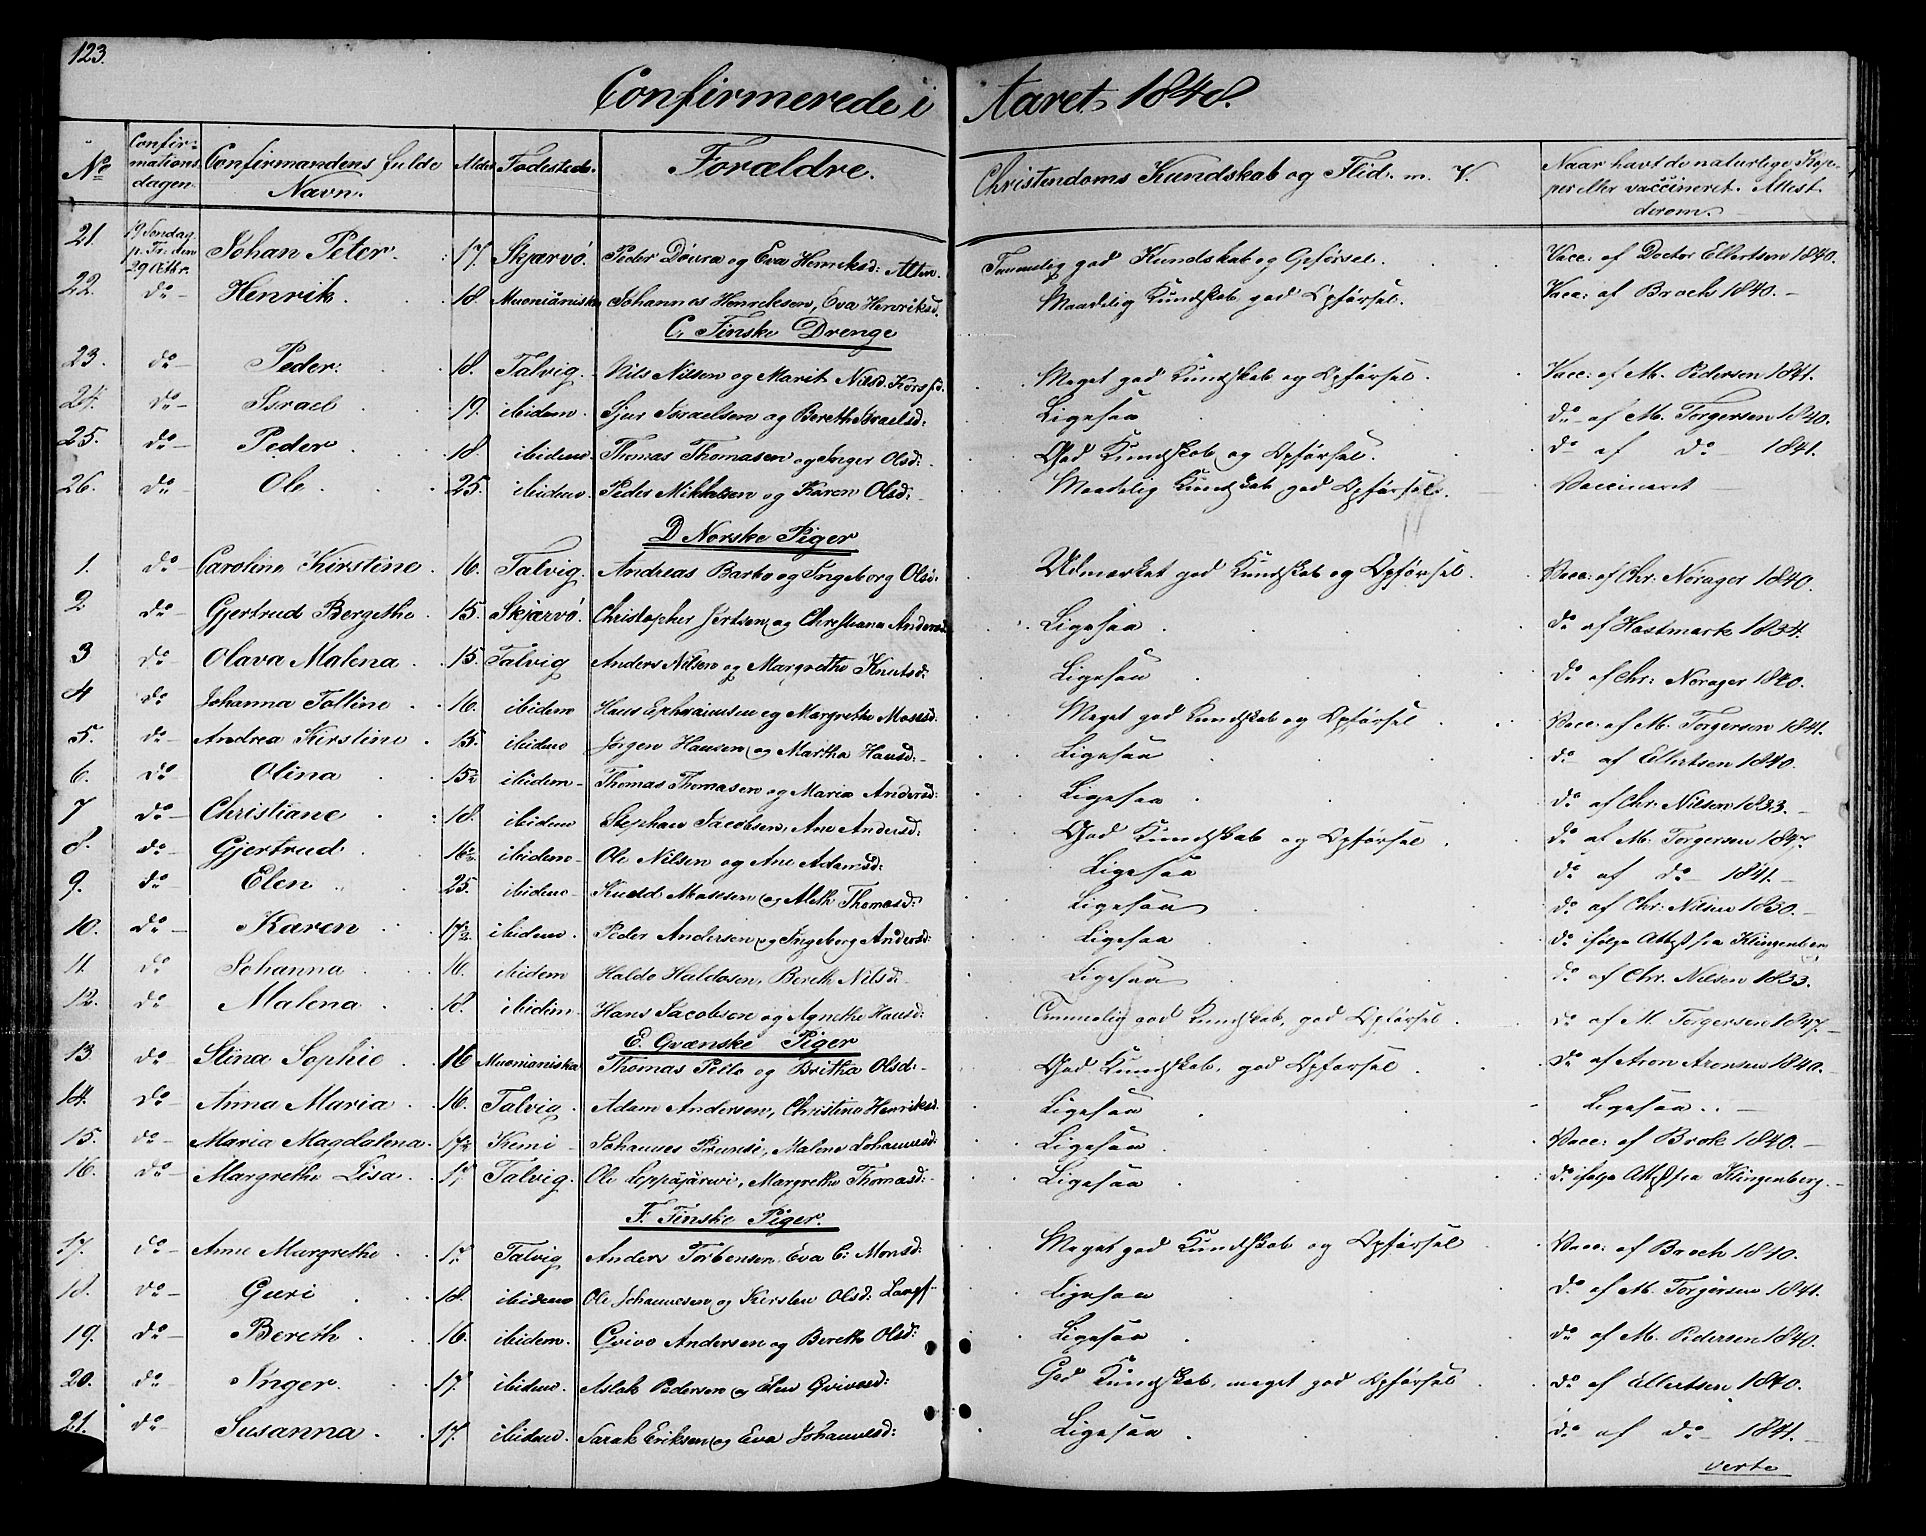 123.
Confirmerede i Aaret 1848.
No Confirmationsdagen. Confirmandens fulde Navn. Alder Fødested. Forældre. Christendoms Kundskab og Flid. m. V. Naar havt de naturlige Kopper eller vaccineret. Attest derom.
21. 19 Søndag p. Tr: den 29 Octbr. Johan Peter. 17. Skjærvö. Peder Doura og Eva Henriksd: Alten. Temmelig god Kundskab og Opförsel. Vacc: af Doctor Ellertsen 1840.
22. do Henrik. 18. Muoniäniska Johannes Henriksen, Eva Henriksd. Maadelig Kundskab god Opförsel. Vacc: af Broch 1840.
C, Finske Drenge
23. do Peder. 18. Talvig. Nils Nilsen og Marit Nilsd. Korsfd. Meget god Kundskab og Opförsel. Vacc: af M. Pedersen 1841.
24. do Israel 19. ibidem. Sjur Israelsen og Bereth Israelsd: Ligesaa do af M. Torgersen 1840.
25. do Peder 18. ibidem. Thomas Thomasen og Inger Olsd: God Kundskab og Opförsel. do af do 1841.
26. do Ole. 25. ibidem. Peder Nikkelsen og Karen Olsd: Maadelig Kundskab god Opförsel. Vaccineret
D Norske Piger
1. do Caroline Kirstine. 16. Talvig. Andreas Barbo og Ingeborg Olsd: Udmærket god Kundskab og Opförsel. Vacc: af Chr: Norager 1840.
2 do Gjertrud Bergethe. 15. Skjærvö. Christopher Jertsen og Christiana Andersd. Ligesaa do af Hastmark 1834.
3 do Olava Malena 15. Talvig Anders Nilsen og Margrethe Knutsd: Ligesaa do af Chr: Norager 1840.
4 do Johanna Tolline 16. ibidem Hans Ephraimsen og Margrethe Mosesd: Meget god Kundskab og Opförsel Vacc. af M. Torgersen 1841.
5. do Andrea Kirstine 15. ibidem Jörgen Hansen og Martha Hansd: Ligesaa do af Ellertsen 1840.
6. do Olina 15½ ibidem Thomas Thomasen og Maria Andersd: Ligesaa do af Chr. Nilsen 1833.
7 do Christiane 18. ibidem Stephan Jacobsen, Ane Andersd: God Kundskab og Opförsel do af M. Torgersen 1847.
8. do Gjertrud 16½ ibidem Ole Nilsen og Ane Adamsd: Ligesaa do af do 1841.
9. do Elen 25. ibidem Knud Mossesen og Aleth Thomasd: Ligesaa do af Chr: Nilsen 1830.
10. do Karen 17½ ibidem. Peder Andersen og Ingeborg Andersd: Ligesaa do ifølge Attest fra Klingenberg
11. do Johanna 16. ibidem Haldo Haldosen, Bereth Nilsd: Ligesaa do af Chr. Nilsen 1833.
12. do Malena 18. ibidem Hans Jacobsen og Agnethe Hansd: Temmelig god Kundskab, god Opförsel do af M. Torgersen 1847.
E. Qvænske Piger
13. do Stina Sophie 16 Muonianiska Thomas Pello og Britha Olsd: God Kundskab, god Opförsel do af Aron Aronsen 1840.
14. do Anna Maria 16. Talvig. Adam Andersen, Christine Henriksd. Ligesaa Ligesaa
15. do Maria Magdalena. 17½ Kemi Johannes Prunsi, Malene Johannesd: Ligesaa Vacc: af Brok 1840.
16. do Margrethe Lisa. 17 Talvig. Ole Leppäjärwi, Margrethe Thomasd: Ligesaa do ifølge Attest fra Klingenberg.
F. Finske Piger.
17. do Anne Margrethe 17. Talvig Anders Torbensen, Eva C: Monsd: Meget god Kundskab og Opförsel Vacc: af Broch 1840.
18. do Guri 18. ibidem Ole Johannesen og Kirsten Olsd: Langf. Ligesaa do af M. Torgersen 1841.
19. do Bereth 16. ibidem. Qvivo Andersen og Bereth Olsd: Ligesaa do af M. Pedersen 1840.
20. do Inger. 17. ibidem. Aslak Pedersen og Elen Qvivosd: God Kundskab, meget god Opförsel do af Ellertsen 1840.
21. do Susanna 17. ibidem Sarak Eriksen og Eva Johannesd: Ligesaa do af do 1841.
verte